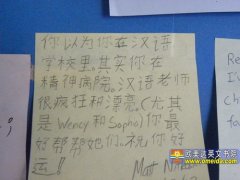 你以为你在汉语
学校里。其实你在
精神病院。汉语老师
很疯狂和漂亮。(尤其
是Wency和Sopho)你最
好帮帮她们。祝你好
运!!
Re
I'
ch
欧美达英文书院
www.omeida.com